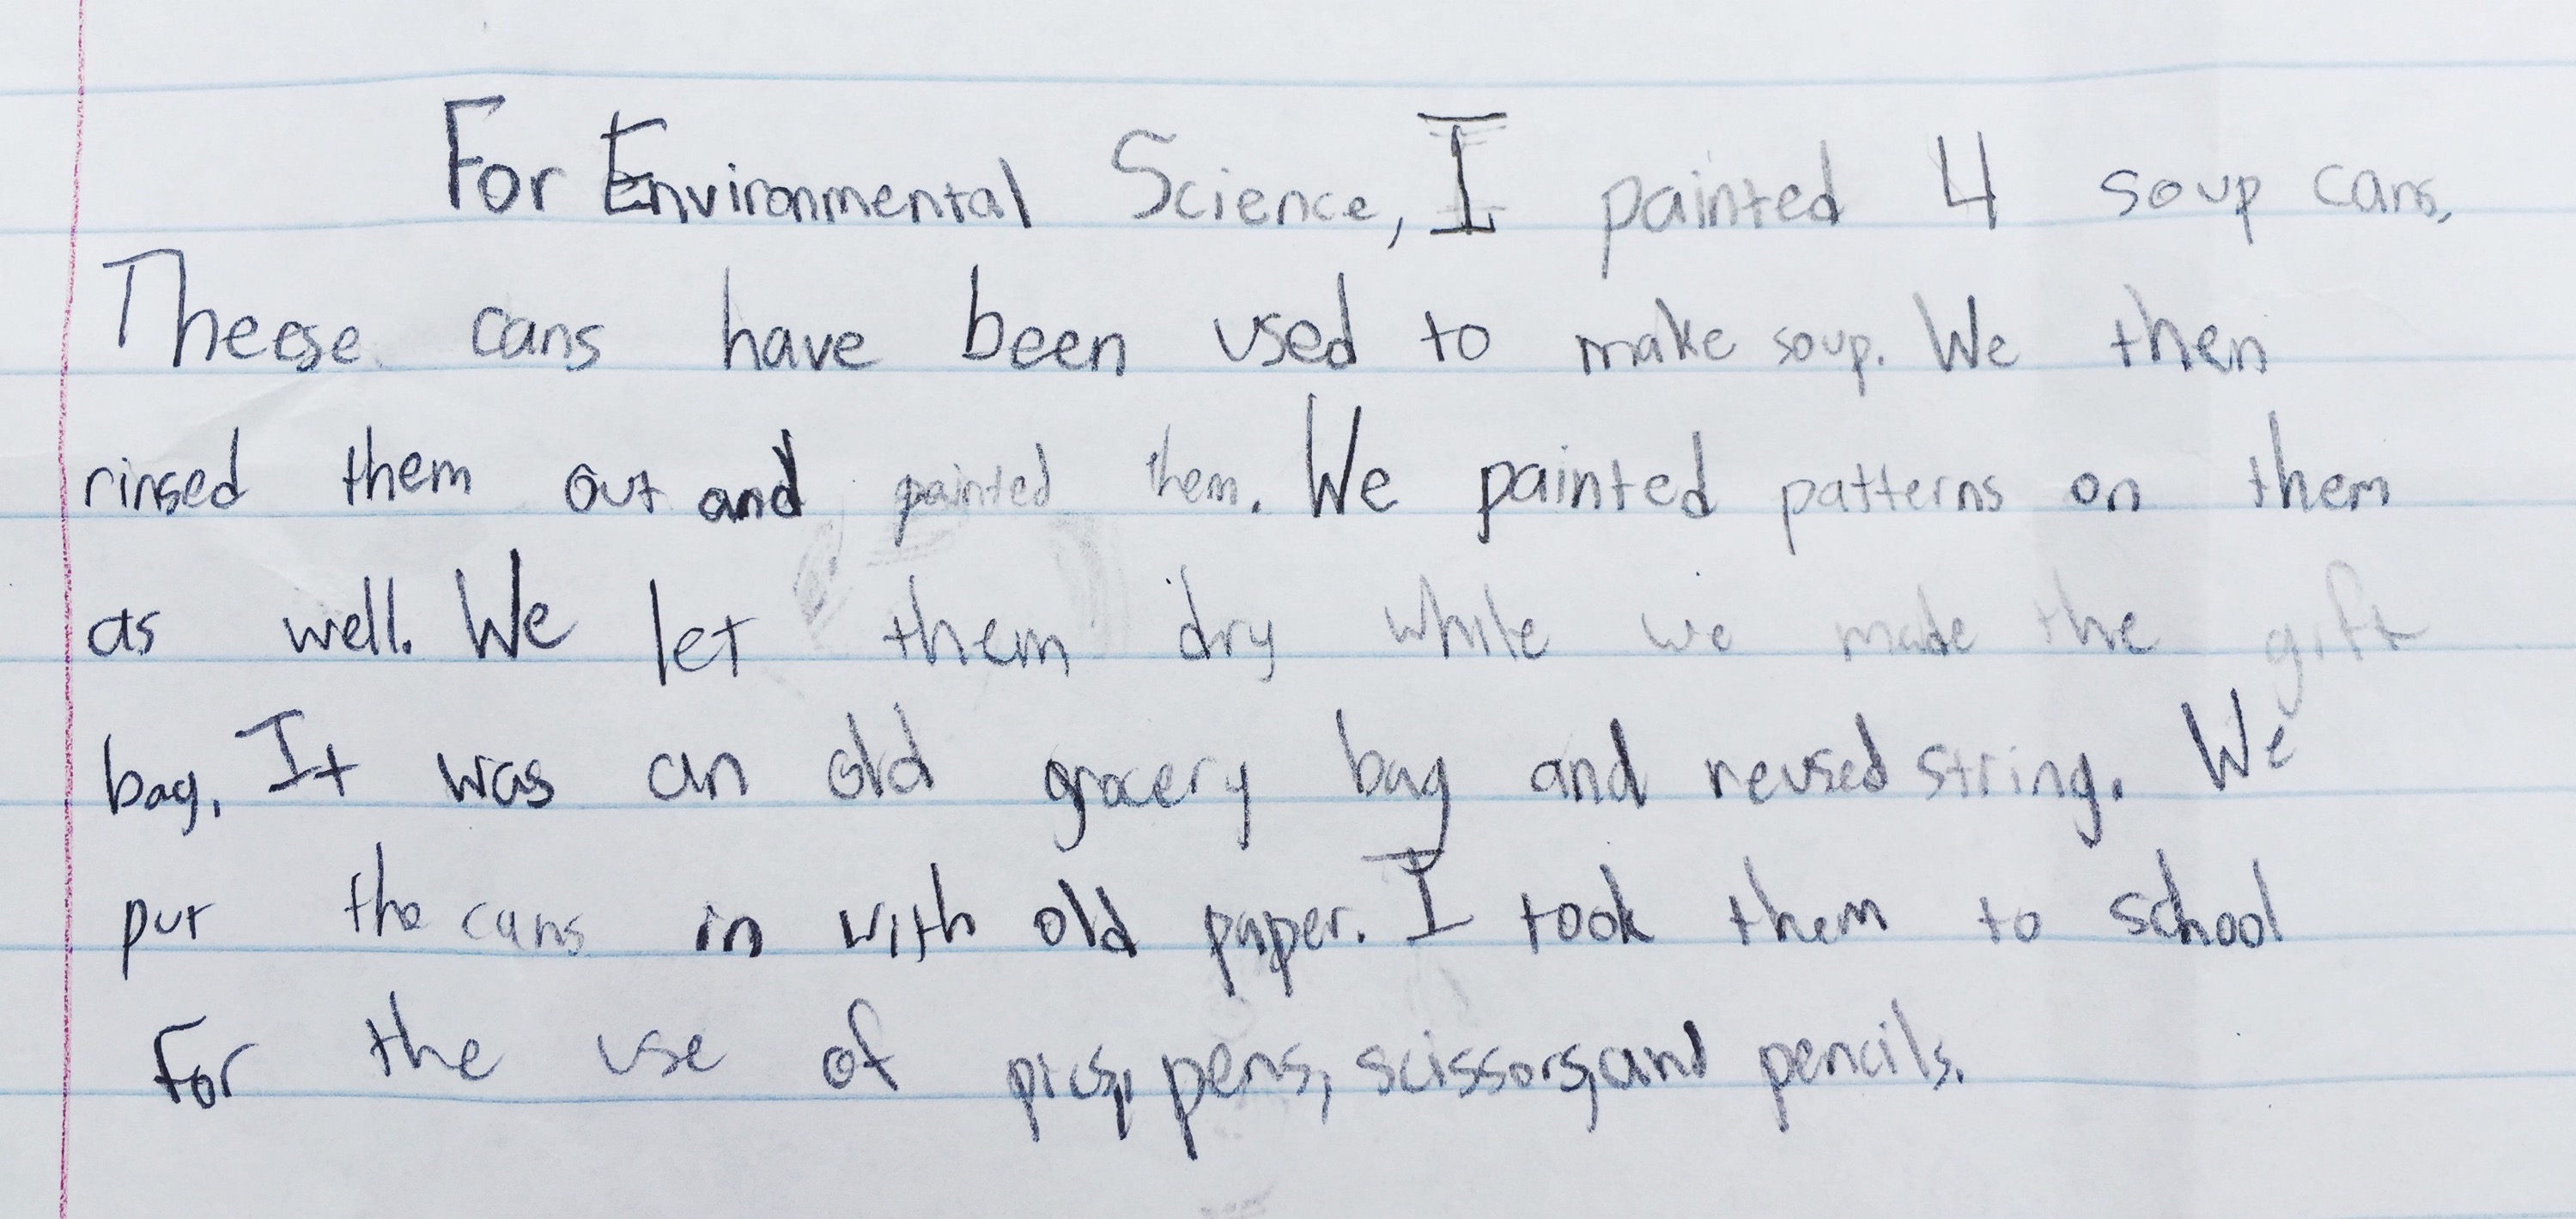 For Environmental Science, I painted 4 soup cans.
Theese cans have been used to make soup. We then
rinsed them out and painted them. We painted patterns on them
as well. We let them dry while we made the gift
bag. It was an old grocery bag and reused string. We
put the cans in with old paper. I took them to school
For the use of pics, pens, scissors, and pencils.